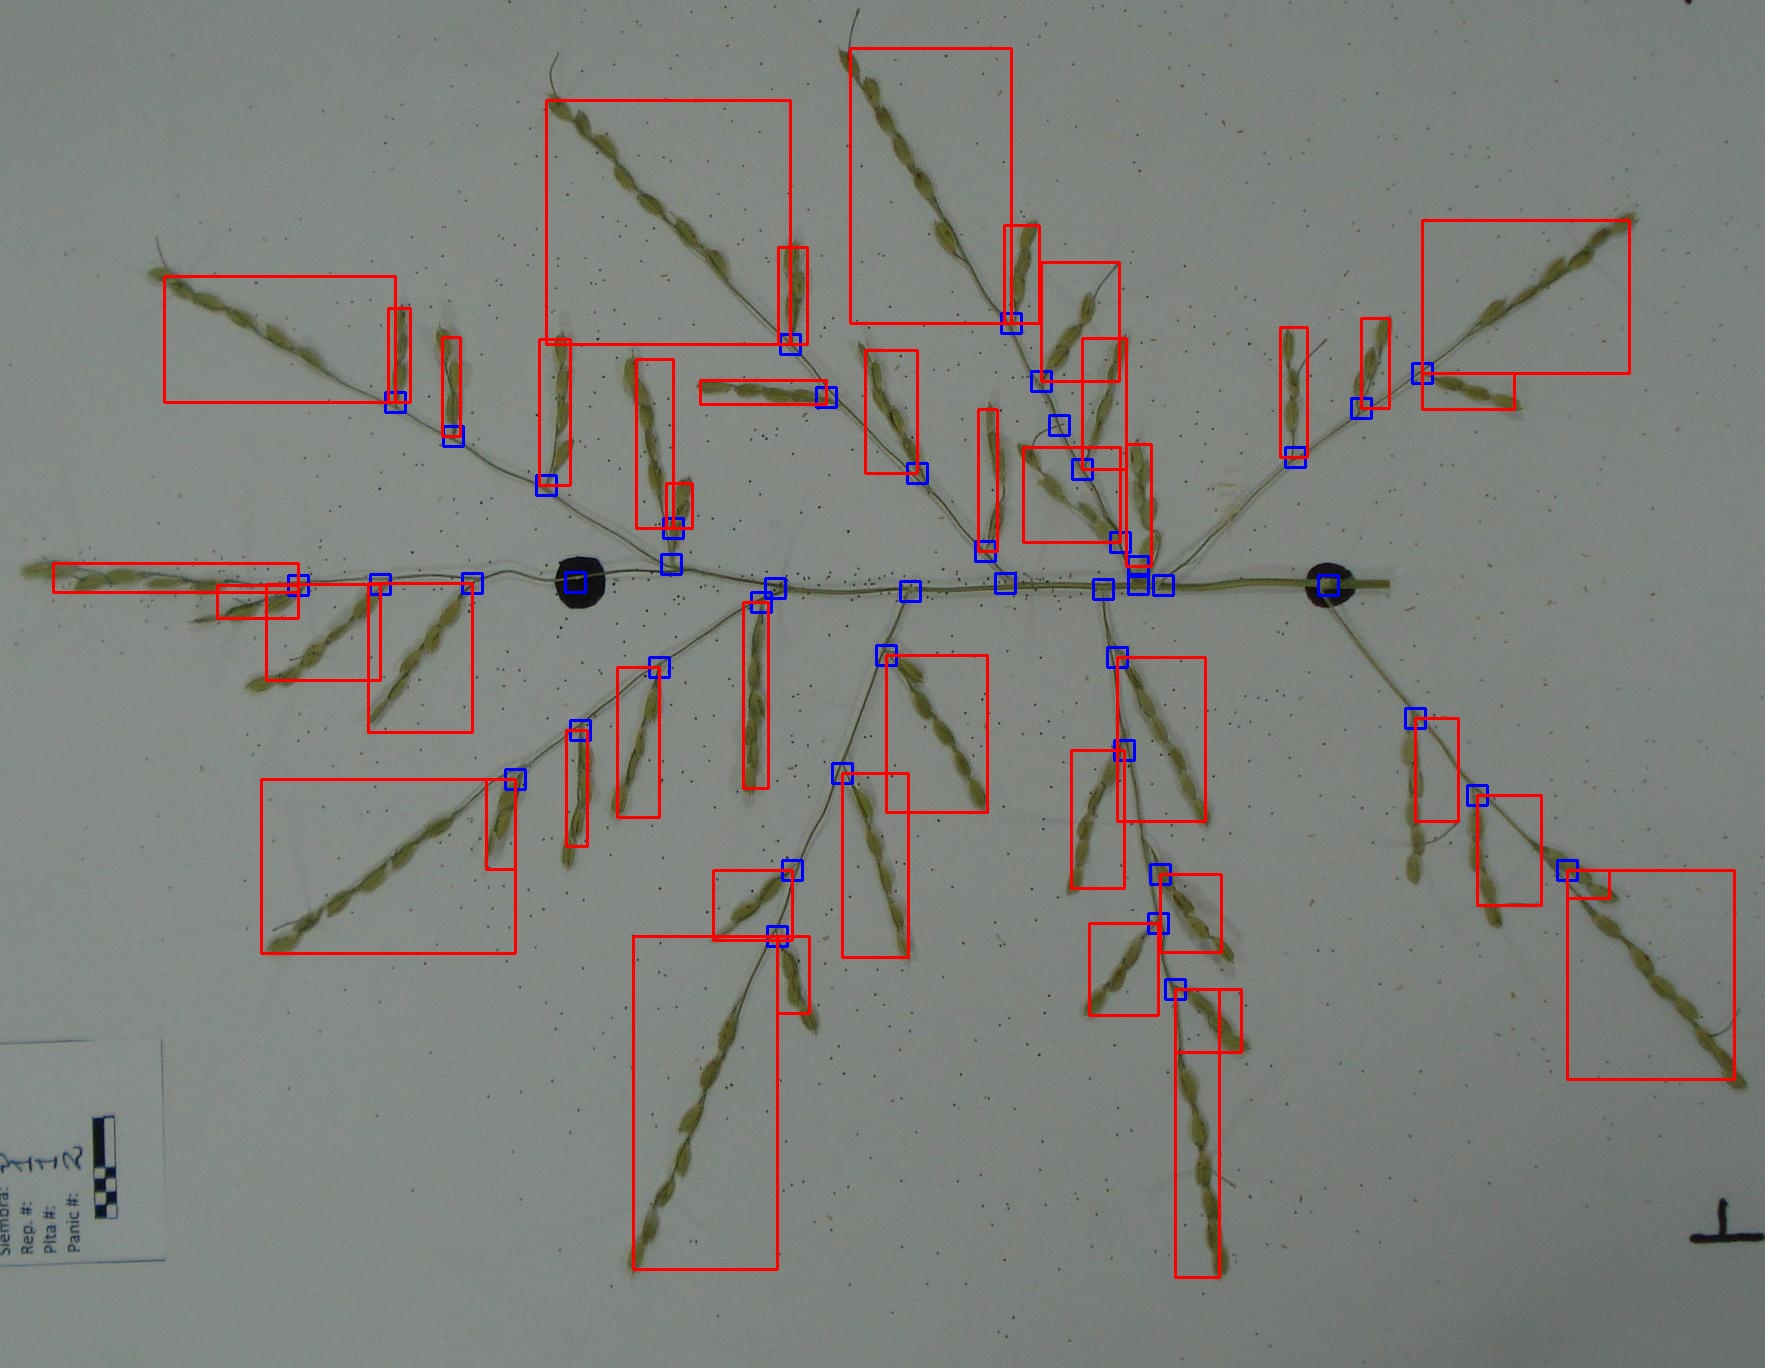 Siembra:
Rep. #: 1
Plta #: 1
Panic #: 2